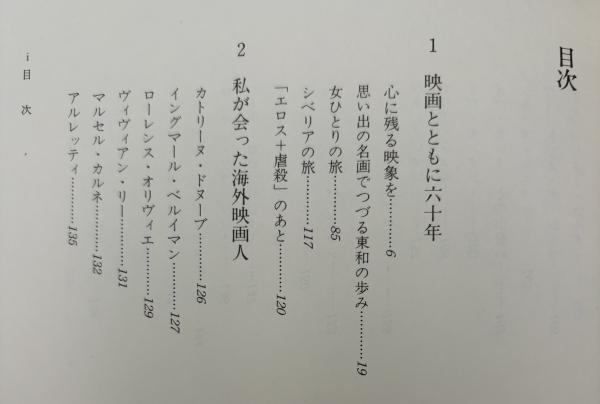 目次
1 映画とともに六十年
心に残る映象を…………6
思い出の名画でつづる東和の歩み…………19
女ひとりの旅…………85
シベリアの旅…………117
「エロス+虐殺」のあと…………120
2 私が会った海外映画人
カトリーヌ・ドヌーブ…………126
イングマール・ベルイマン…………127
ローレンス・オリヴィエ…………129
ヴィヴィアン・リー…………131
マルセル・カルネ…………132
アルレッティ…………135
i 目次